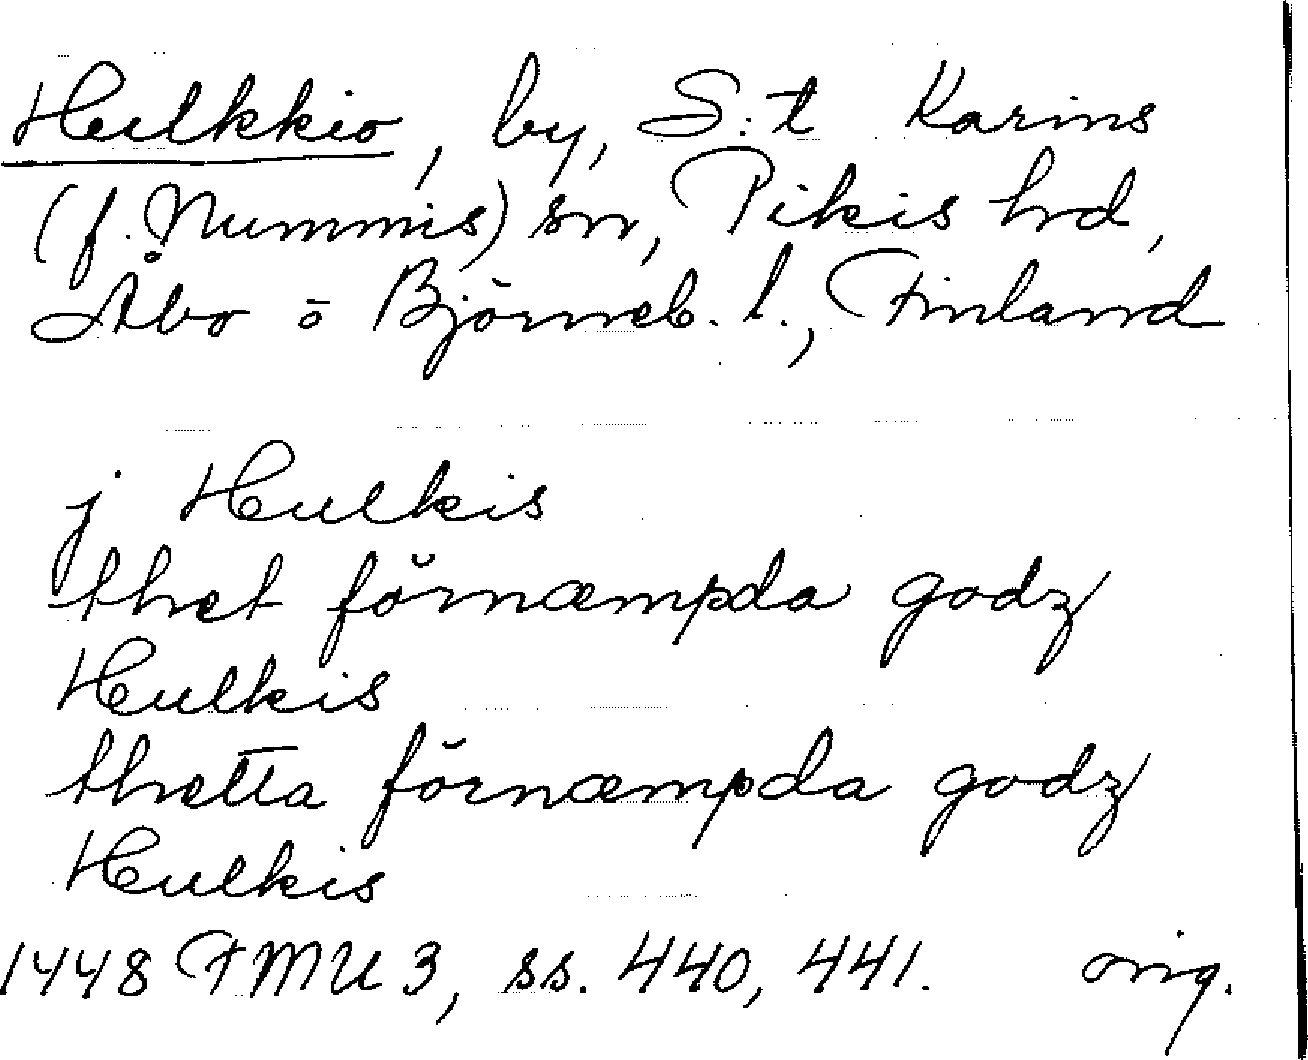 Hulkkio, by, S:t Karins
(f. Nummis) sn, Pikis hrd,
Åbo o Björneb. l., Finland
j Hulkis
thet förnæmpda godz
Hulkis
thetta förnæmpda godz
Hulkis
1448 FMU 3, ss. 440, 441. orig.